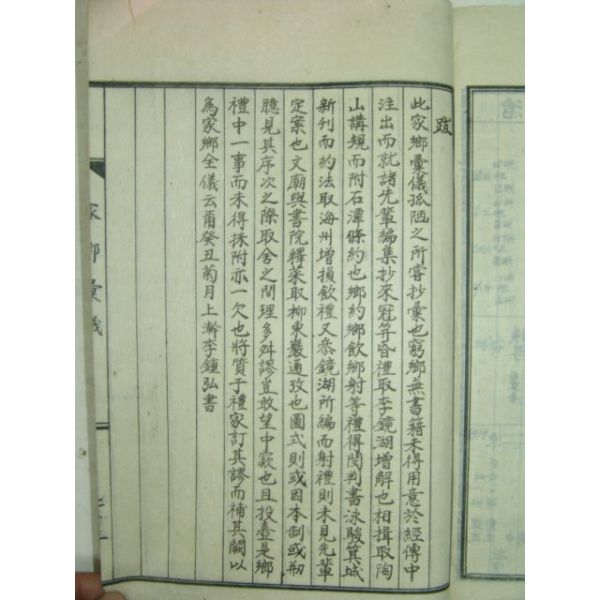 跋
此家鄉彙儀孤陋之所嘗抄彙也窮鄉無書籍未得用意於經傳中
注出而就諸先輩編集抄來冠笄昏禮取李鏡湖增解也相揖取陶
山講規而附石潭條約也鄉約鄉飲鄉射等禮得閔判書泳駿箕城
新刊而約法取海州增損飲禮又叅鏡湖所編而射禮則未見先輩
定案也文廟與書院釋菜取柳東巖通攷也圖式則或因本制或刱
臆見其序次之際取舍之間理多舛謬豈敢望中窾也且投壺是鄉
禮中一事而未得採附亦一欠也將質于禮家訂其謬而補其闕以
爲家鄉全儀云爾癸丑菊月上澣李鍾弘書
家鄉彙儀